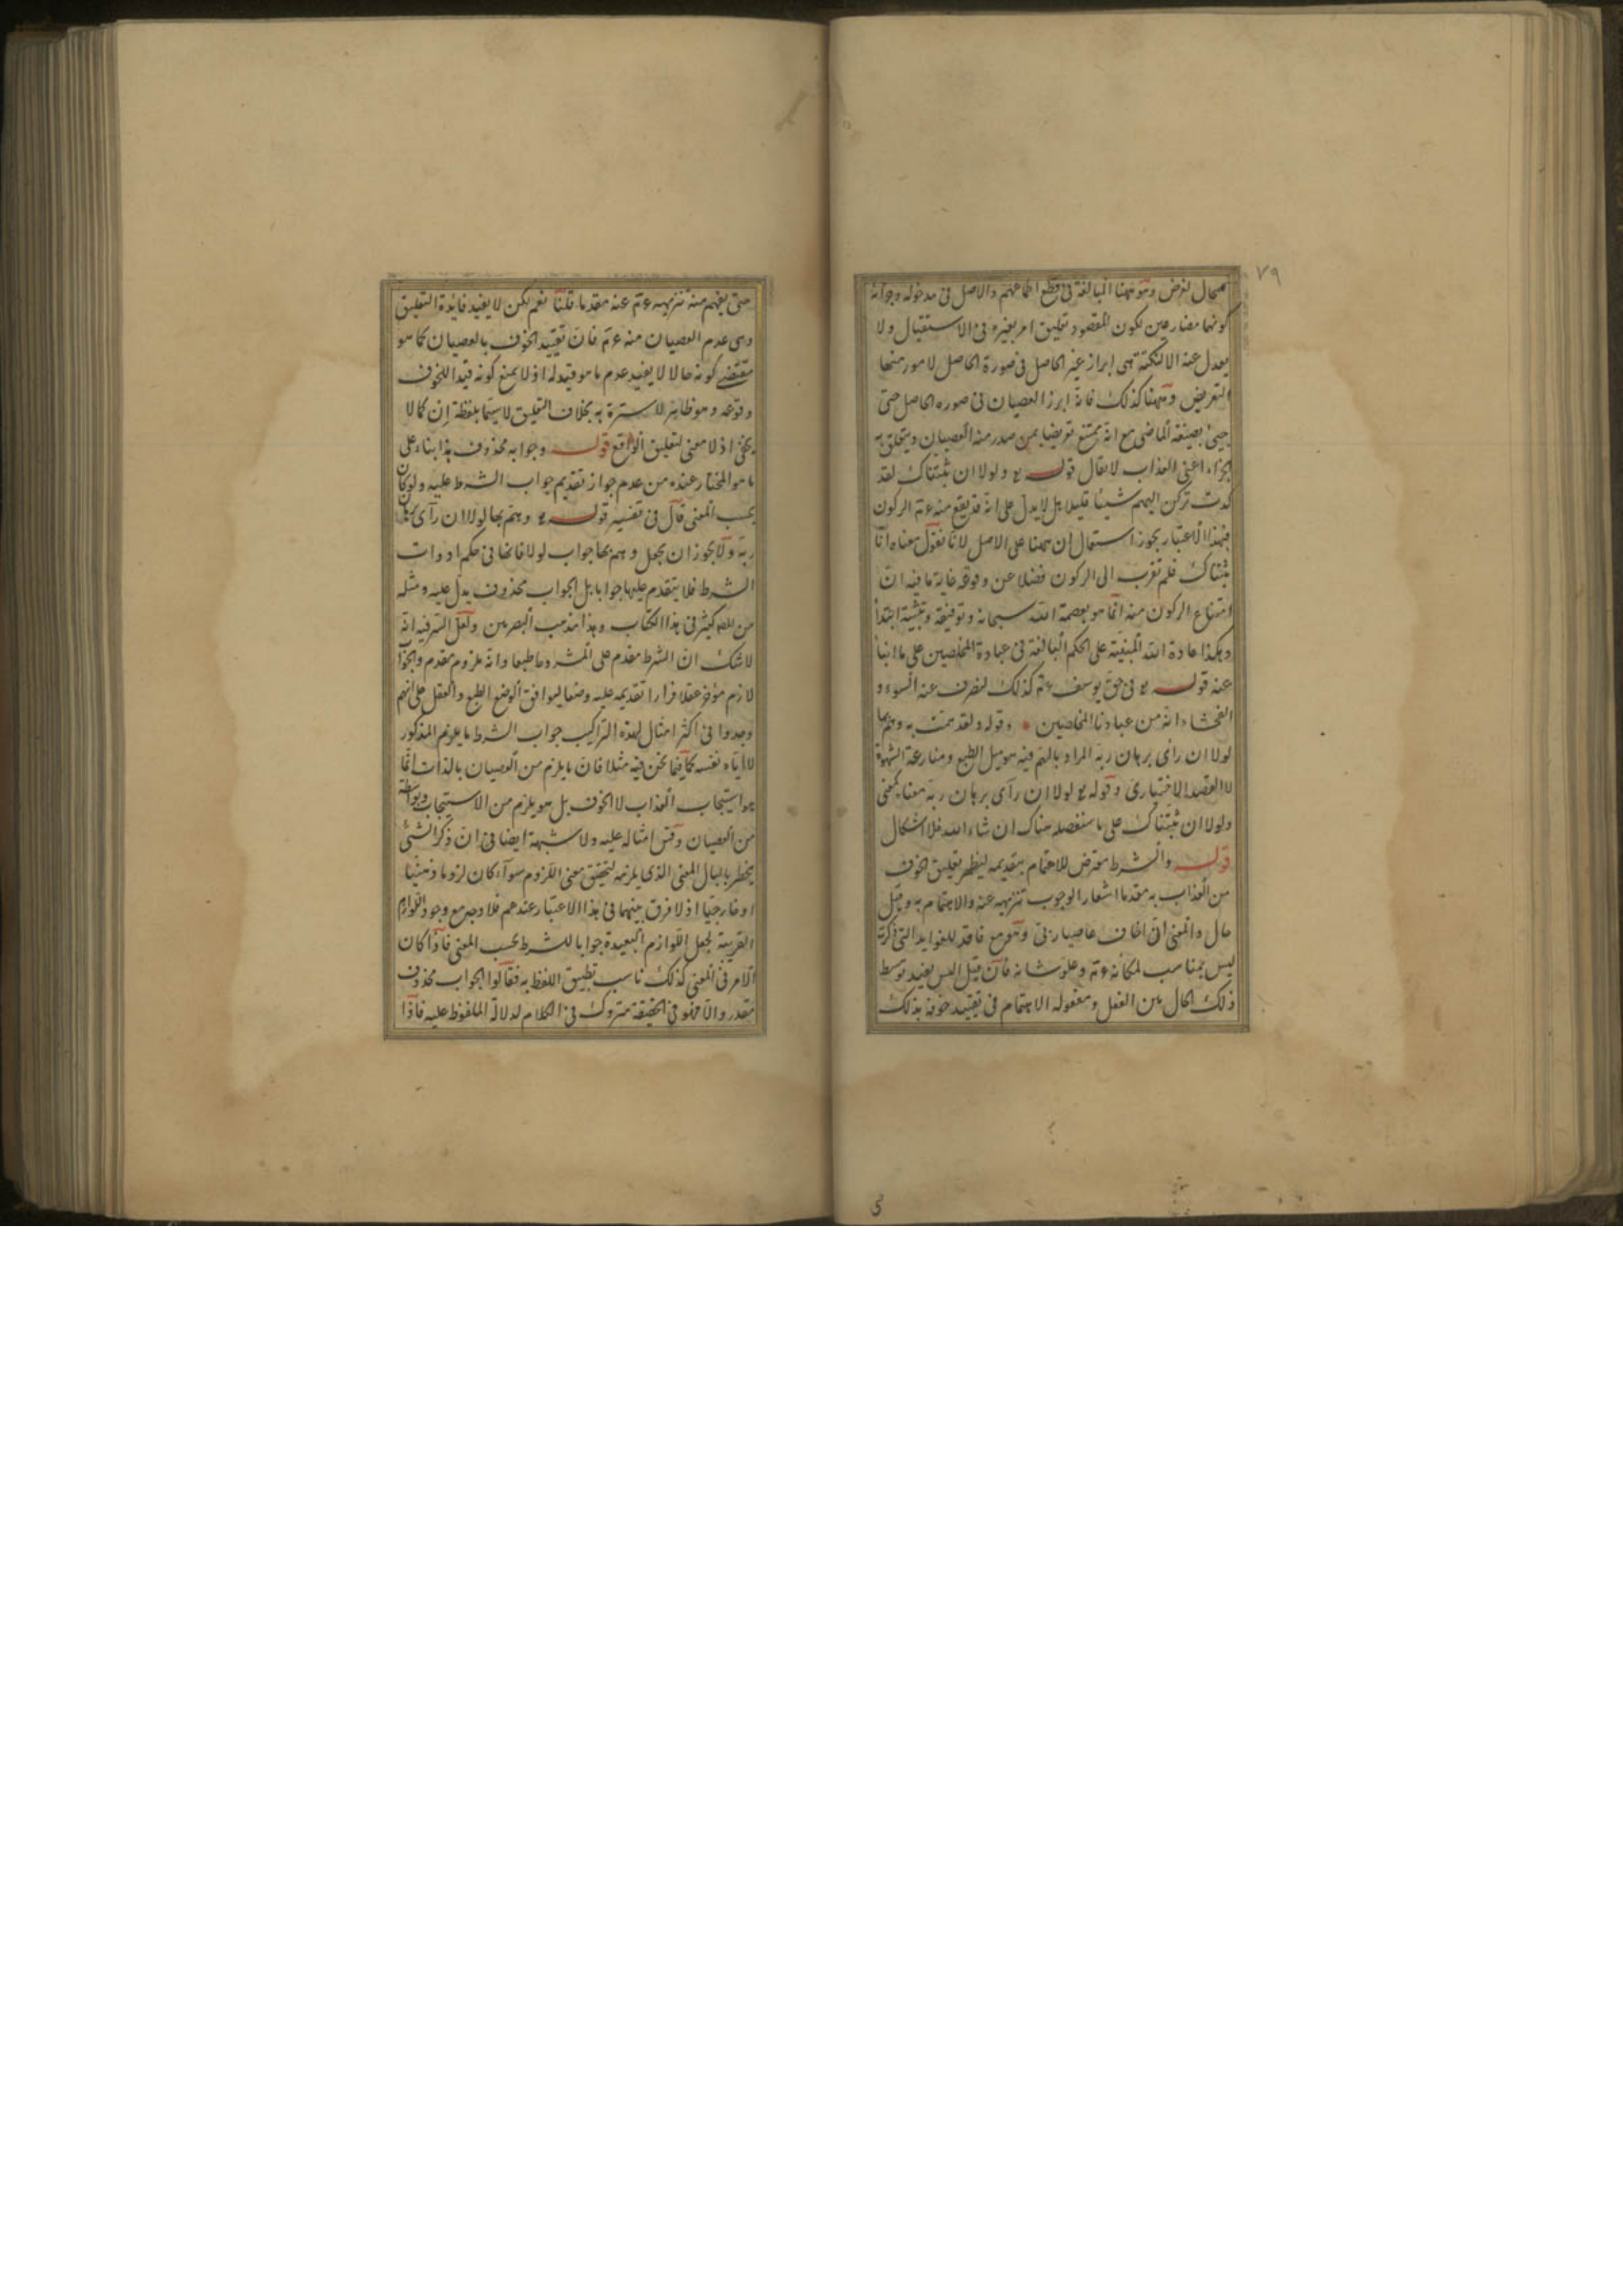 ٧٩
لمحال لغرض وهو ههنا المبالغة فى قطع اطماعهم والاصل فى مدخوله وجوابه
كونهما مضارعين لكون المقصود تعليق امر بغيره فى الاستقبال ولا
يعدل عنه الا لنكتة هى ابراز غير الحاصل فى صورة الحاصل لامور منها
التعريض وههنا كذلك فانه ابرز العصيان فى صورة الحاصل حتى
جيئ بصيغة الماضى مع انه يمتنع تعريضا بمن صدر منه العصيان ويتعلق به
الجزاء اعنى العذاب لا يقال قوله تع ولولا ان ثبتناك لقد
كدت تركن اليهم شيئا قليلا بل لا يدل على انه قد يقع منه عم الركون
فبهذا الاعتبار يجوز استعمال ان ههنا على الاصل لانا نقول معناه انا
ثبتناك فلم تقرب الى الركون فضلا عن وقوعه غاية ما فيه ان
امتناع الركون منه انما هو بعصمة الله سبحانه وتوفيقه وتثبيته ابتداء
وهكذا عادة الله المبنية على الحكم البالغة فى عبادة المخلصين على ما انبأ
عنه قوله تع فى حق يوسف عم كذلك لنصرف عنه السوء و
الفحشاء انه من عبادنا المخلصين وقوله ولقد همت به وهم بها
لولا ان رأى برهان ربه المراد بالهم فيه هو ميل الطبع ومنازعة الشهوة
لا القصد الاختيارى وقوله تع لولا ان رآى برهان ربه معناه كمعنى
ولولا ان ثبتناك على ما سنفصله هناك ان شاء الله فلا اشكال
قوله والشرط معترض للاهتمام بتقديمه ليظهر تعليق الخوف
من العذاب به مقدما اشعارا لوجوب تنزيهه عنه والاهتمام به وقيل
حال والمعنى انى اخاف عاصيا ربى وهو مع فاقد للفوايد التى ذكرت
ليس بمناسب لمكانه عم وعلو شانه فان قيل اليس يفيد توسط
ذلك الحال بين الفعل ومفعوله الاهتمام فى تقييد خوفه بذلك
حتى يفهم منه تنزيهه عم عنه مقدما قلنا نعم لكن لا يفيد فايدة التعليق
وهى عدم العصيان منه عم فان تقييد الخوف بالعصيان كما هو
مقتضى كونه حالا لا يفيد عدم ما هو قيد له اذ لا يمنع كونه قيدا للخوف
وقوعه وهو ظاهر لا سترة به بخلاف التعليق لا سيما بلفظة ان كما لا
يخفى اذ لا معنى لتعليق الواقع قوله وجوابه محذوف هذا بناء على
ما هو المختار عنده من عدم جواز تقديم جواب الشرط عليه ولو كان
بحسب المعنى قال فى تفسير قوله تع وهم بها لولا ان رآى برهان
ربه ولا يجوز ان يجعل وهم بها جواب لولا فانها فى حكم ادوات
الشرط فلا يتقدم عليها جوابا بل الجواب محذوف يدل عليه ومثله
من المص كثير فى هذا الكتاب وهذا مذهب البصريين ولعل السر فيه انه
لا شك ان الشرط مقدم على المشروط طبعا وانه ملزوم مقدم والجواب
لازم مؤخر عقلا فرارا تقديمه عليه وضعا ليوافق الوضع الطبع والعقل على انهم
وجدوا فى اكثر امثال هذه التراكيب جواب الشرط ما يلازم المذكور
لا اياه نفسه كما فيما نحن فيه مثلا فان ما يلزم من العصيان بالذات انما
هو استيجاب العذاب لا الخوف بل هو يلزم من الاستيجاب وبواسطة
من العصيان وقس امثاله عليه ولا شبهة ايضا فى ان ذكر الشئ
يخطر بالبال المعنى الذى يلزمه لتحقق معنى اللزوم سوآء كان لزوما ذهنيا
او خارجيا اذ لا فرق بينهما فى هذا الاعتبار عندهم فلا وجه مع وجود اللوازم
القريبة لجعل اللوازم البعيدة جوابا للشرط بحسب المعنى فاذا كان
الامر فى المعنى كذلك ناسب تطبيق اللفظ به فقالوا الجواب محذوف
مقدر والا فهو فى الحقيقة متروك فى الكلام لدلالة الملفوظ عليه فاذا